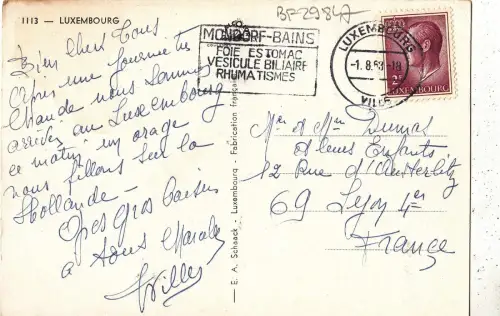 1113 — LUXEMBOURG
BF2981A
Bien chers Tous.
Après une journée très
chaude nous sommes
arrivés au Luxembourg
ce matin, un orage
nous filons sur la
Hollande —
Gros baisers
à tous
Willy
MONDORF-BAINS
FOIE ESTOMAC
VESICULE BILIAIRE
RHUMATISMES
LUXEMBOURG
VILLE
LUXEMBOURG
E. A. Schaack - Luxembourg - Fabrication française
Mr et Mme Dumas
et leurs Enfants
12 Rue d'Austerlitz
69 Lyon 4e
France